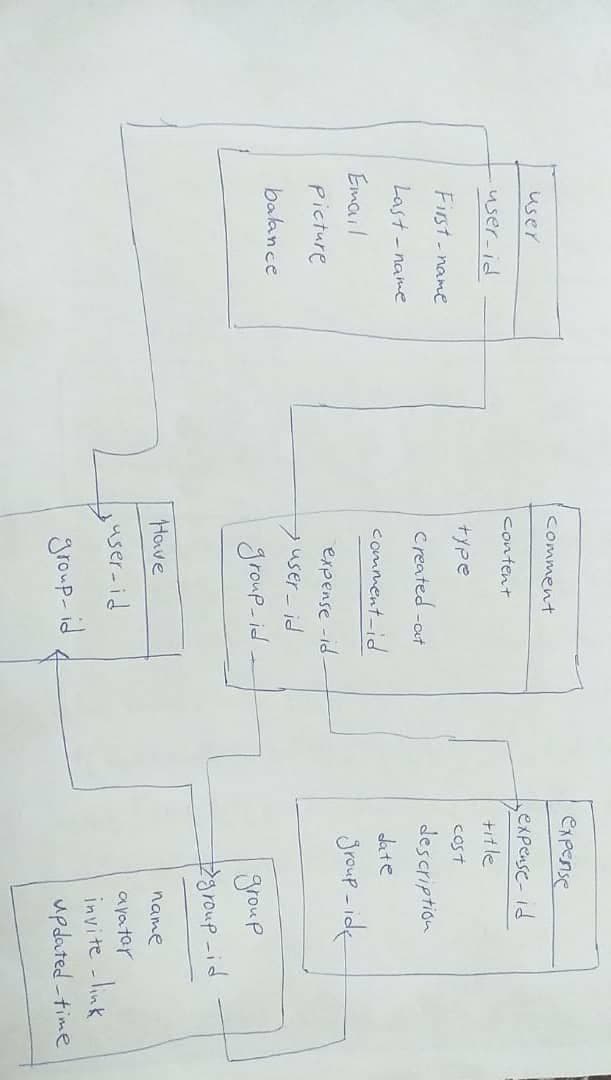 user
user_id
First_name
Last_name
Email
picture
balance
comment
content
type
created_at
comment_id
expense_id
user_id
group_id
expense
expense_id
title
cost
description
date
group_id
Have
user_id
group_id
group
group_id
name
avatar
invite_link
updated_time